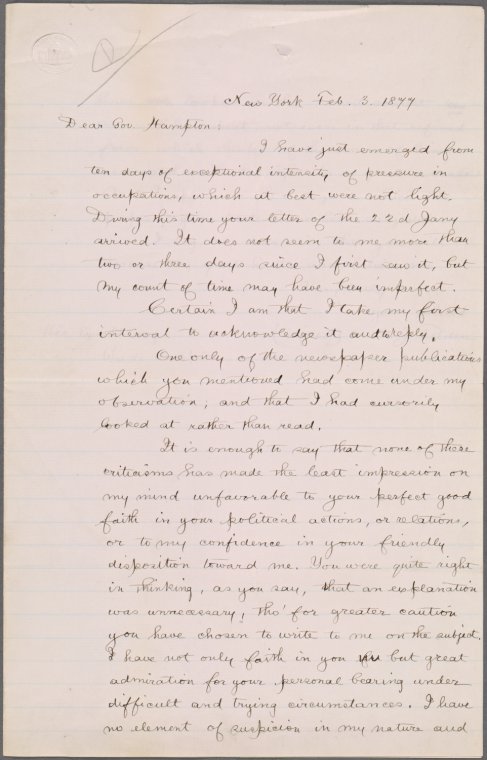 New York Feb. 3. 1877
Dear Gov. Hampton:
I have just emerged from
ten days of exceptional intensity, of pressure in
occupations, which at best were not light.
During this time your letter of the 22d Jany
arrived. It does not seem to me more than
two or three days since I first saw it, but
my count of time may have been imperfect.
Certain I am that I take my first
interval to acknowledge it and reply.
One only of the newspaper publications
which you mentioned had come under my
observation; and that I had cursorily
looked at rather than read.
It is enough to say that none of these
criticisms has made the least impression on
my mind unfavorable to your perfect good
faith in your political actions, or relations,
or to my confidence in your friendly
disposition toward me. You were quite right
in thinking, as you say, that an explanation
was unnecessary, tho' for greater caution
you have chosen to write to me on the subject.
I have not only faith in you but great
admiration for your personal bearing under
difficult and trying circumstances. I have
no element of suspicion in my nature and